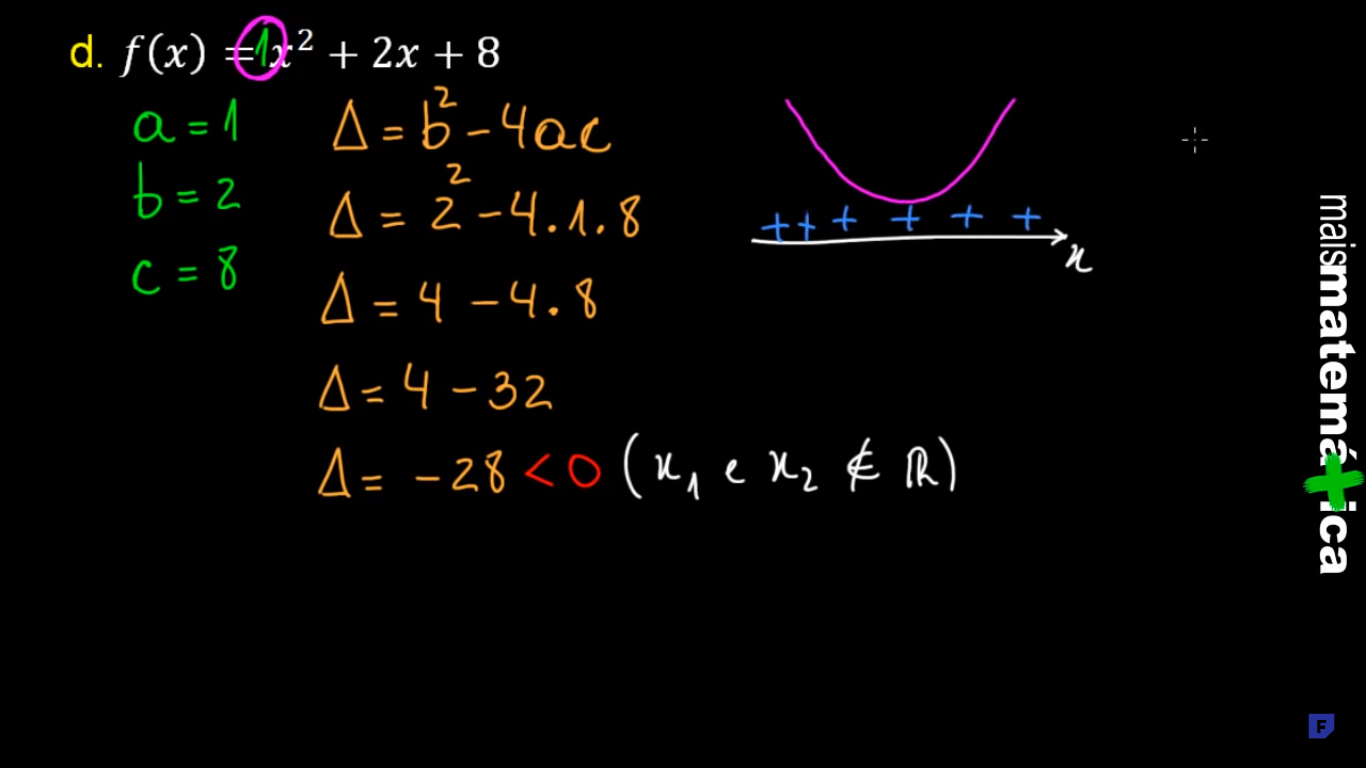 d. f(x) = 1x² + 2x + 8
a = 1
b = 2
c = 8
Δ = b² - 4ac
Δ = 2² - 4.1.8
Δ = 4 - 4.8
Δ = 4 - 32
Δ = -28 < 0 (x₁ e x₂ ∉ ℝ)
+ + + + + +
x
maismatemática
F